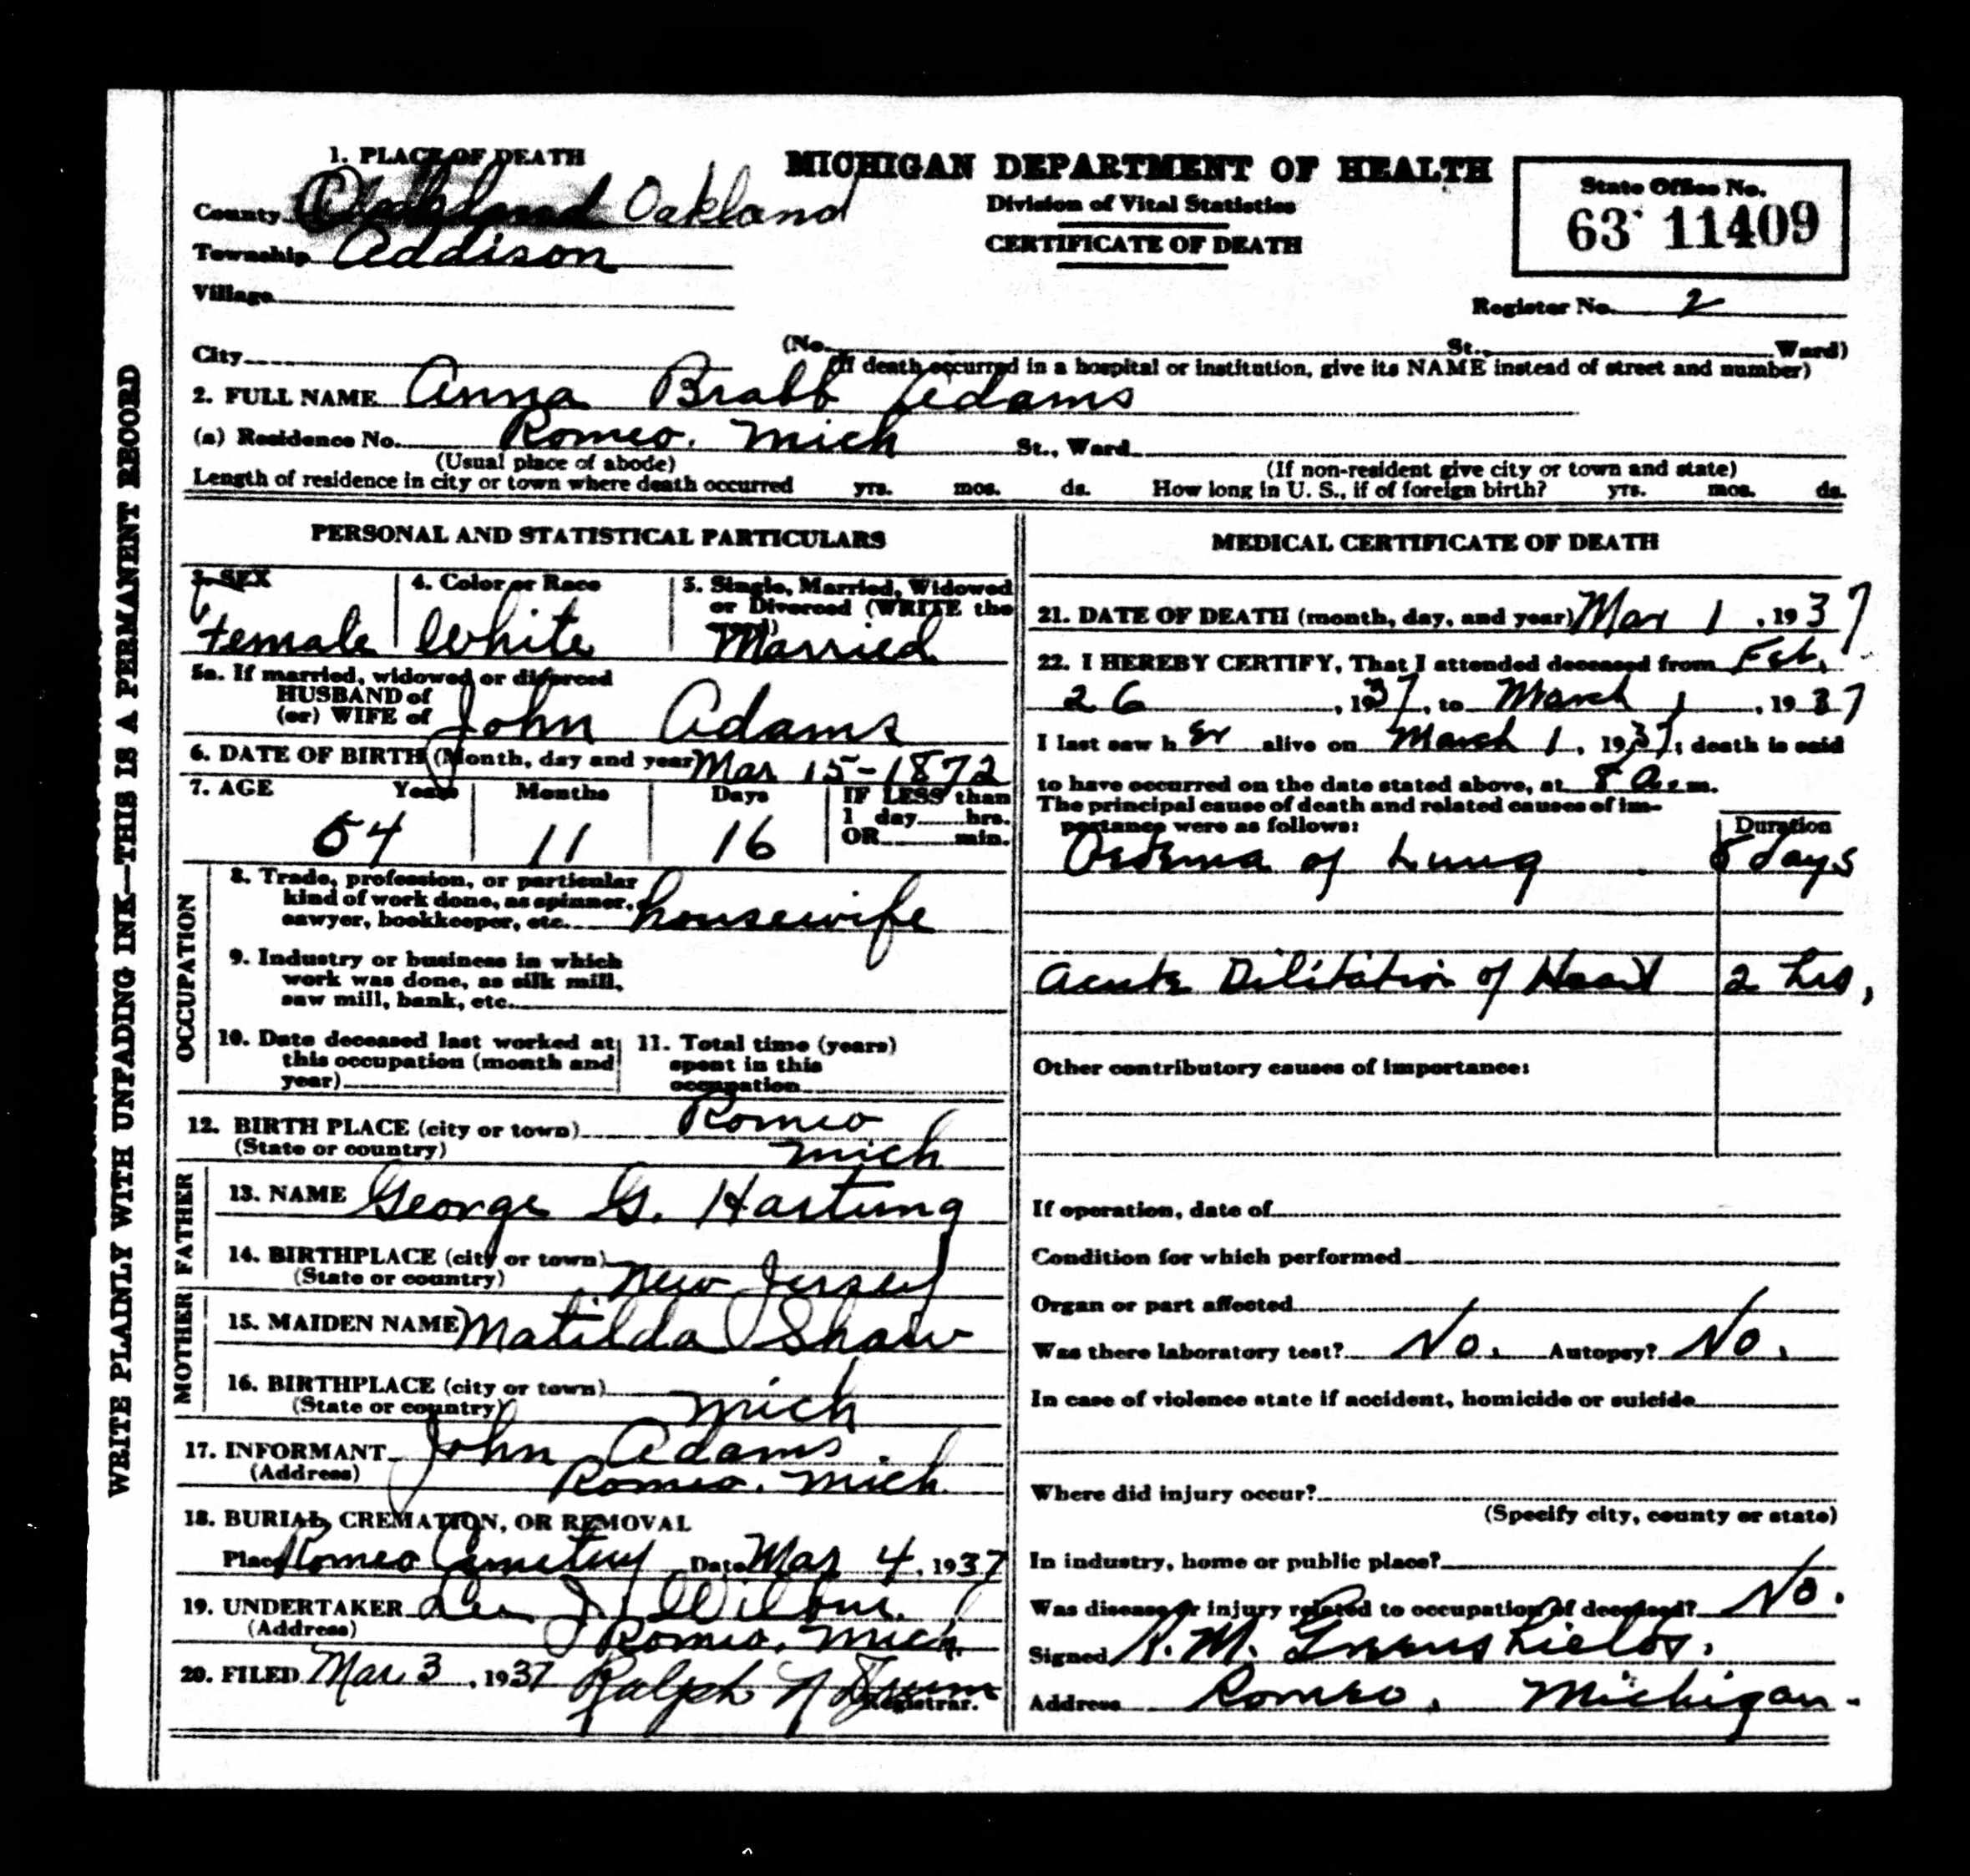 WRITE PLAINLY WITH UNFADING INK—THIS IS A PERMANENT RECORD
1. PLACE OF DEATH
County Oakland Oakland
Township Addison
Village
City
MICHIGAN DEPARTMENT OF HEALTH
Division of Vital Statistics
CERTIFICATE OF DEATH
State Office No.
63 11409
Register No. 2
(No. St., Ward)
(If death occurred in a hospital or institution, give its NAME instead of street and number)
2. FULL NAME Anna Brabb Adams
(a) Residence No. Romeo. Mich St., Ward
(Usual place of abode) (If non-resident give city or town and state)
Length of residence in city or town where death occurred yrs. mos. ds. How long in U. S., if of foreign birth? yrs. mos. ds.
PERSONAL AND STATISTICAL PARTICULARS
3. SEX
female
4. Color or Race
White
5. Single, Married, Widowed
or Divorced (WRITE the
word)
Married
5a. If married, widowed or divorced
HUSBAND of
(or) WIFE of John Adams
6. DATE OF BIRTH (Month, day and year) Mar 15-1872
7. AGE Years Months Days IF LESS than
1 day hrs.
OR min.
64 11 16
OCCUPATION
8. Trade, profession, or particular
kind of work done, as spinner,
sawyer, bookkeeper, etc. housewife
9. Industry or business in which
work was done, as silk mill,
saw mill, bank, etc.
10. Date deceased last worked at
this occupation (month and
year)
11. Total time (years)
spent in this
occupation
12. BIRTH PLACE (city or town) Romeo
(State or country) Mich
FATHER
13. NAME George G. Hartung
14. BIRTHPLACE (city or town)
(State or country) New Jersey
MOTHER
15. MAIDEN NAME Matilda Shaw
16. BIRTHPLACE (city or town)
(State or country) Mich
17. INFORMANT John Adams
(Address) Romeo. Mich
18. BURIAL, CREMATION, OR REMOVAL
Place Romeo Cemetery Date Mar 4, 1937
19. UNDERTAKER Lee J. Wilbur.
(Address) Romeo, Mich.
20. FILED Mar 3, 1937 Ralph N Drum
Registrar.
MEDICAL CERTIFICATE OF DEATH
21. DATE OF DEATH (month, day, and year) Mar 1, 1937
22. I HEREBY CERTIFY, That I attended deceased from Feb.
26, 1937, to March 1, 1937
I last saw h er alive on March 1, 1937; death is said
to have occurred on the date stated above, at 8 A. m.
The principal cause of death and related causes of im-
portance were as follows:
Duration
Oedema of Lung days
Acute Dilitation of Heart 2 hrs,
Other contributory causes of importance:
If operation, date of
Condition for which performed
Organ or part affected
Was there laboratory test? No. Autopsy? No.
In case of violence state if accident, homicide or suicide
Where did injury occur?
(Specify city, county or state)
In industry, home or public place?
Was disease or injury related to occupation of deceased? No.
Signed R. M. Greenshields.
Address Romeo, Michigan.